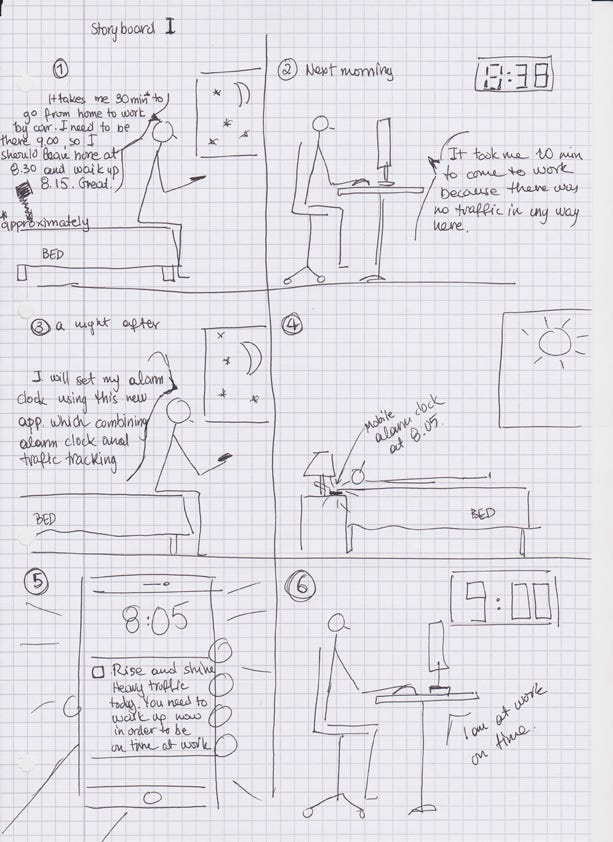 Storyboard I
1
It takes me 30 min* to
go from home to work
by car. I need to be
there 9.00, so I
should leave home at
8.30 and waik up
8.15. Great.
*approximately
BED
2 Next morning
8:38
It took me 10 min
to come to work
because there was
no traffic in any way
here.
3 a night after
I will set my alarm
clock using this new
app. which combining
alarm clock and
trafic tracking
BED
4
Mobile
alarm clock
at 8.05
BED
5
8:05
Rise and shine
Heavy traffic
today. You need to
waik up now
in order to be
on time at work
6
9:00
I am at work
on time.